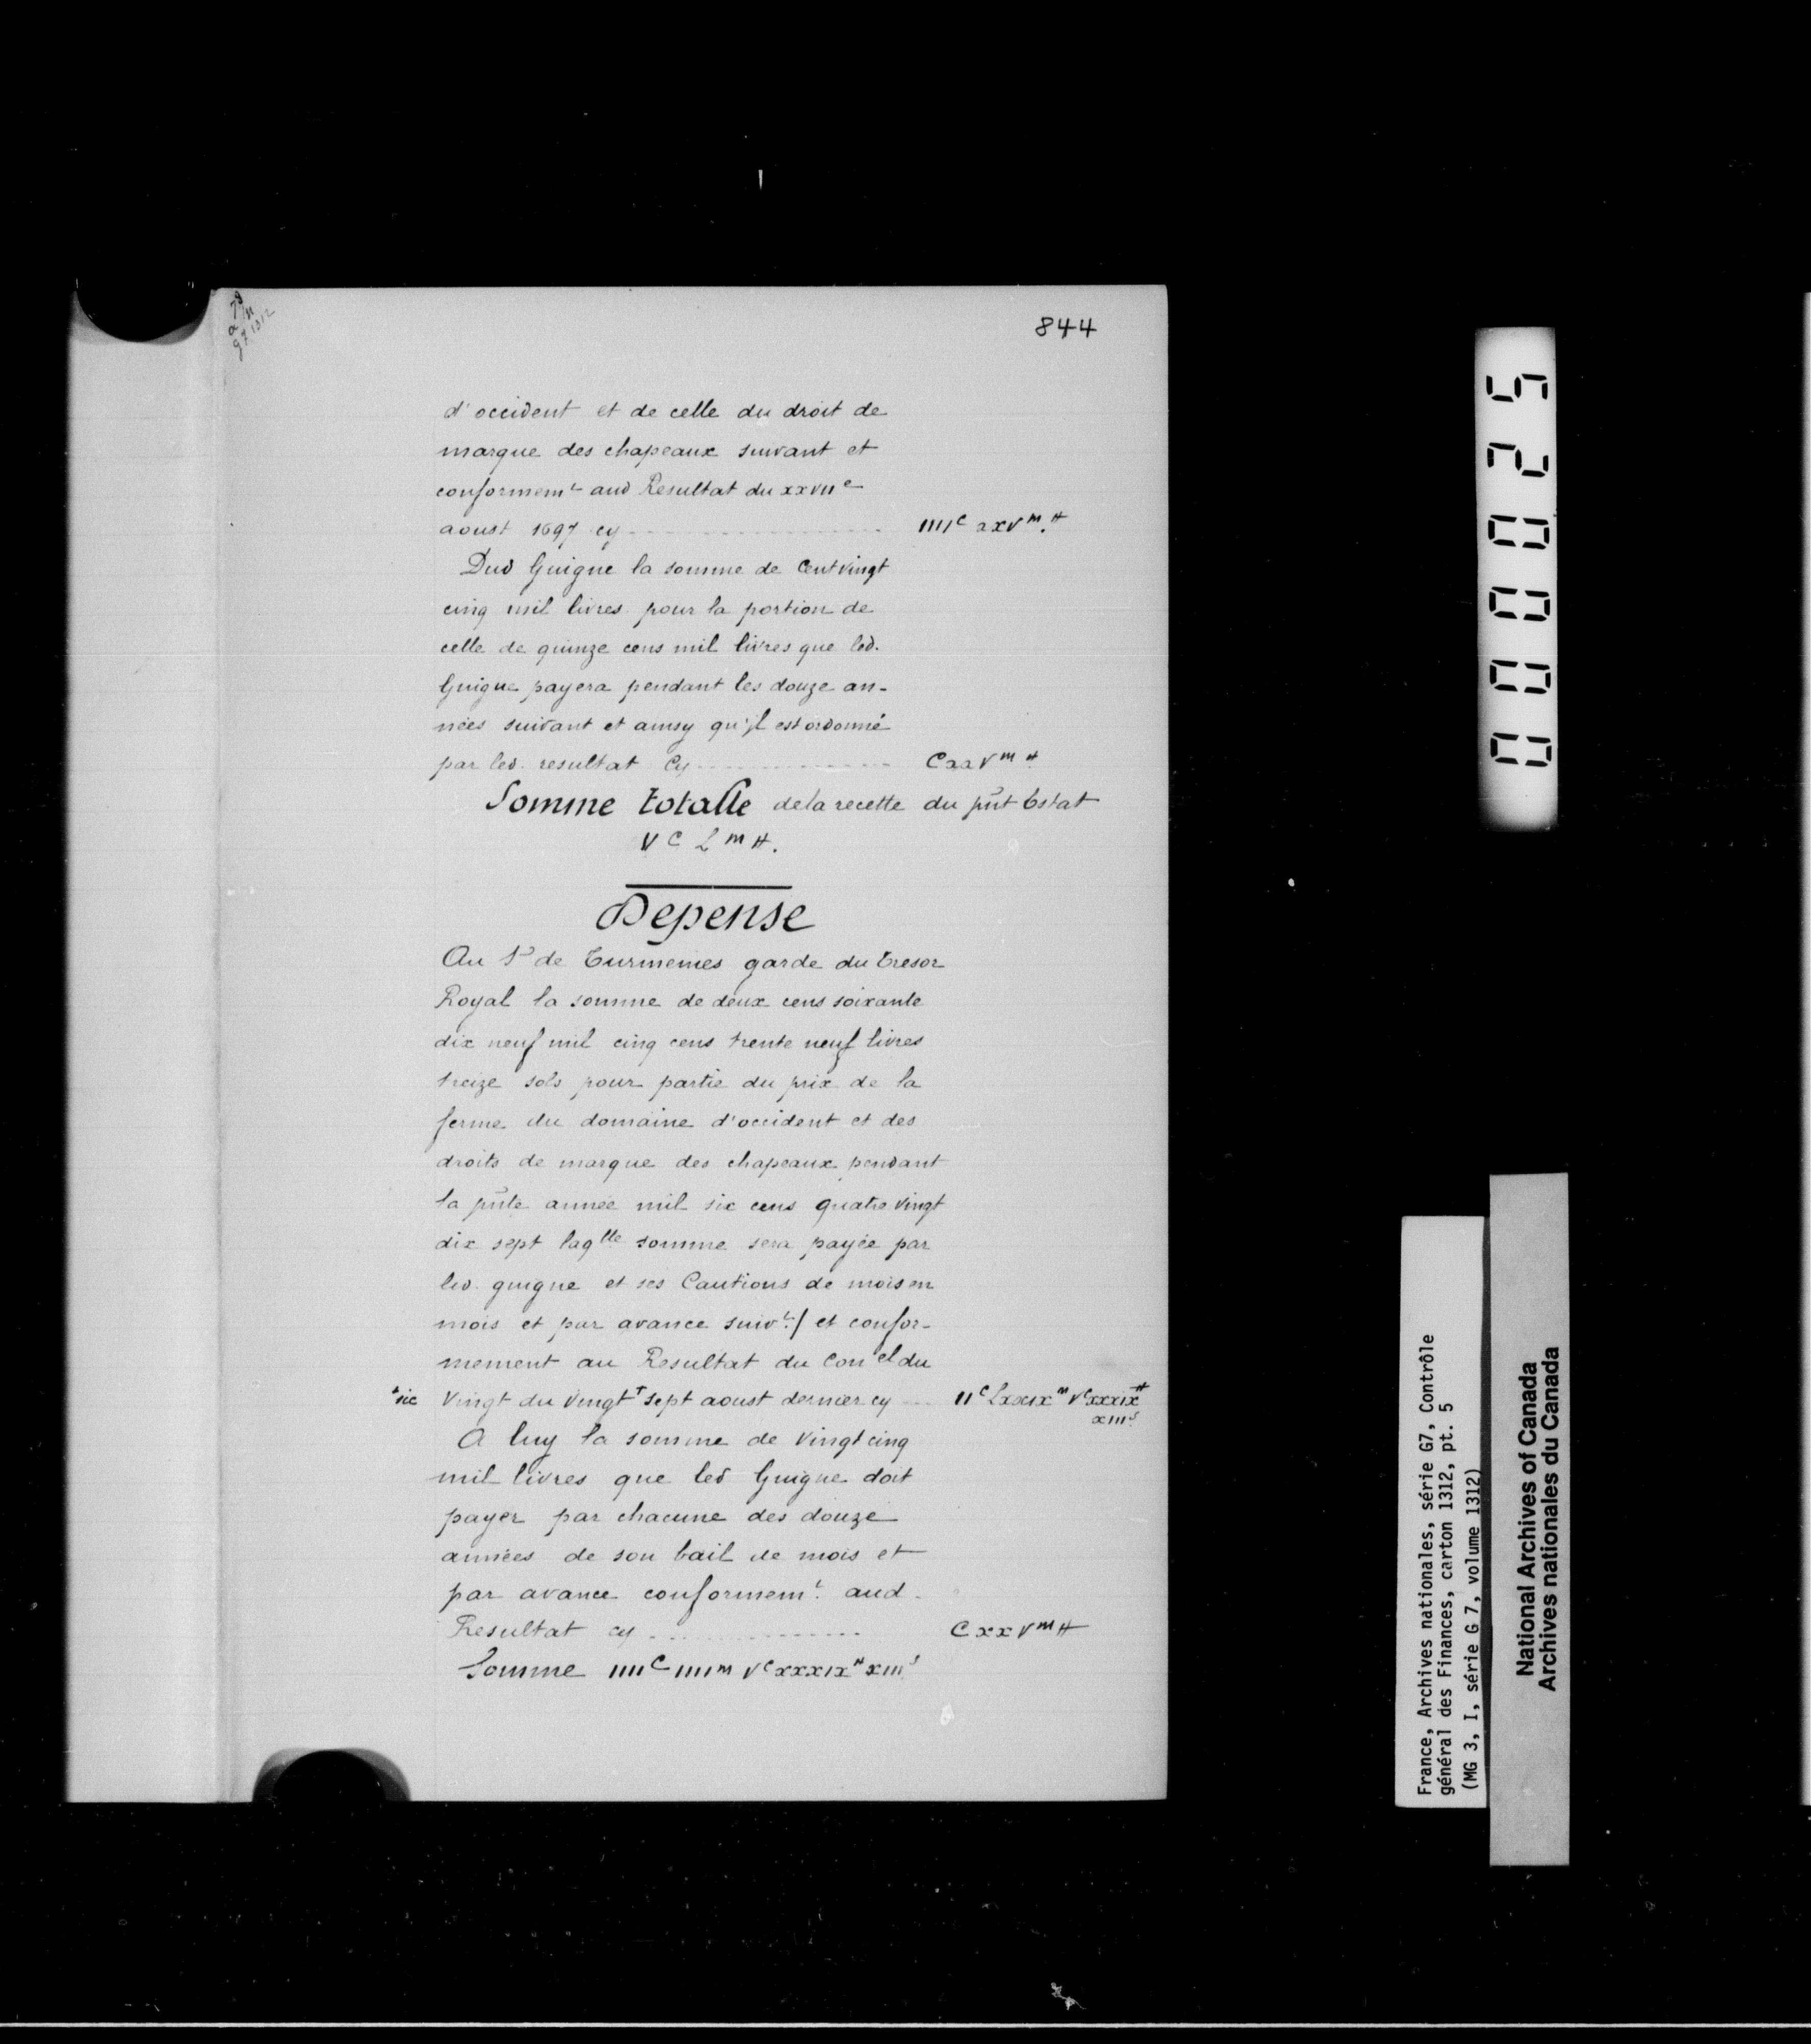 844
d'occident et de celle du droit de
marque des chapeaux suivant et
conformemt aud Resultat du xxvIIe
aoust 1697 cy ------------------ IIIIC xxvm.#
Dud Guigue la somme de Centvingt
cinq mil livres pour la portion de
celle de quinze cens mil livres que led.
Guigue payera pendant les douze an-
nées suivant et ainsy qu'jl est ordonné
par led. resultat Cy -------------- Cxxvm #
Somme totalle de la recette du pn̄t Estat
VC Lm #.
Depense
Au Sr de Turmenies garde du tresor
Royal la somme de deux cens soixante
dix neuf mil cinq cens trente neuf livres
treize sols pour partie du prix de la
ferme du domaine d'occident et des
droits de marque des chapeaux pendant
la pn̄te année mil six cens quatre vingt
dix sept laqlle somme sera payée par
led. guigue et ses Cautions de mois en
mois et par avance suivt./ et confor-
mement au Resultat du Conel du
+sic Vingt du Vingt+ sept aoust dernier cy ... IIC LxxIxm VCxxxIx#
xIIIs.
A luy la somme de Vingt cinq
mil livres que led Guigue doit
payer par chacune des douze
années de son bail de mois et
par avance conformemt. aud.
Resultat cy ---------------- Cxxvm #
Somme IIIIC IIIIm VC xxxIx# xIIIs.
00025
France, Archives nationales, série G7, Contrôle
général des Finances, carton 1312, pt. 5
(MG 3, I, série G 7, volume 1312)
National Archives of Canada
Archives nationales du Canada